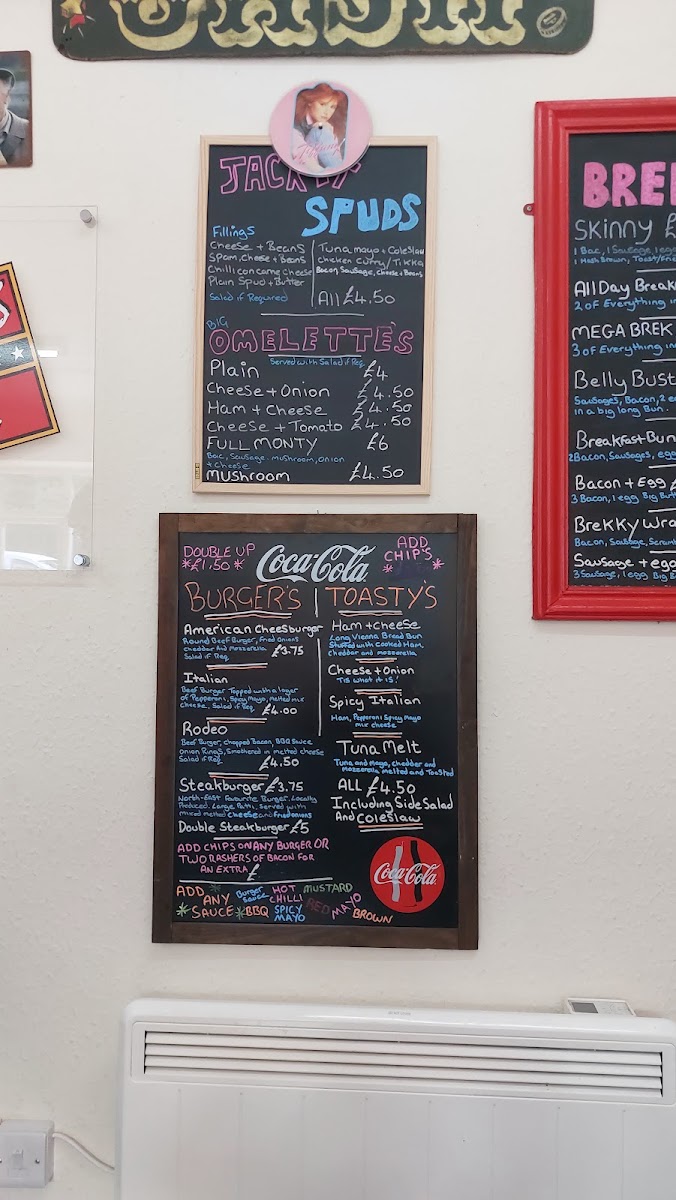 JACK IT
SPUDS
Fillings
Cheese + Beans
Spam, Cheese + Beans
Chilli con carne cheese
Plain Spud + Butter
Salad if Required
Tuna mayo + Coleslaw
Chicken Curry/Tikka
Bacon, Sausage, Cheese + Beans
All £4.50
BIG
OMELETTE'S
Served with Salad if Req
Plain £4
Cheese + Onion £4.50
Ham + Cheese £4.50
Cheese + Tomato £4.50
FULL MONTY £6
Bac, Sausage, mushroom, Onion
+ Cheese
Mushroom £4.50
DOUBLE UP
*£1.50*
Coca-Cola
ADD
CHIP'S
BURGER'S
American Cheesburger
Round Beef Burger, Fried Onions
Cheddar And Mozzarella
Salad if Req £3.75
Italian
Beef Burger Topped with a layer
of Pepperoni, Spicy Mayo, melted mix
cheese, Salad if Req
£4.00
Rodeo
Beef Burger, chopped Bacon, BBQ Sauce
Onion Rings, Smothered in melted cheese
Salad if Req
£4.50
Steakburger £3.75
North-East favourite Burger, Locally
Produced. Large Patti, Served with
mixed melted cheese and fried onions
Double Steakburger £5
ADD CHIPS ON ANY BURGER OR
TWO RASHERS OF BACON FOR
AN EXTRA £
TOASTY'S
Ham + cheese
Long Vienna Bread Bun
Stuffed with Cooked Ham,
cheddar and mozzarella
Cheese + Onion
Tis what it is!
Spicy Italian
Ham, Pepperoni Spicy Mayo
mix cheese
Tuna Melt
Tuna and Mayo, cheddar and
Mozzerella melted and Toasted
ALL £4.50
Including Side Salad
And Coleslaw
Coca-Cola
ADD
ANY
SAUCE
Burger
Sauce
BBQ
HOT
CHILLI
SPICY
MAYO
MUSTARD
RED
MAYO
BROWN
BRE
SKINNY £
1 Bac, 1 Sausage, 1 egg
1 Hash Brown, Toast/Frie
All Day Break
2 of Everything in
MEGA BREK
3 of Everything in
Belly Bust
Sausages, Bacon, 2 e
in a big long Bun.
Breakfast Bun
2 Bacon, Sausages, egg
Bacon + Egg
3 Bacon, 1 egg Big But
Brekky Wra
Bacon, Sausage, Scram
Sausage + egg
3 Sausage, 1 egg Big B